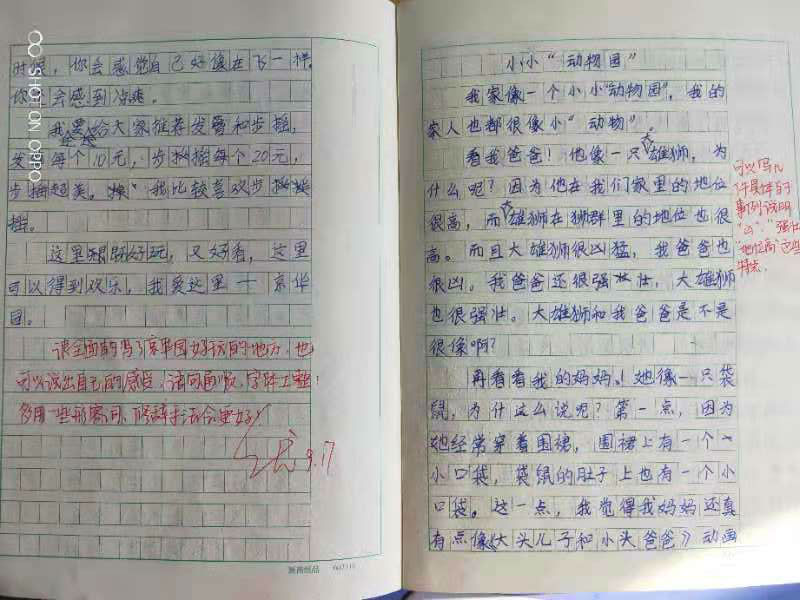 时候，你会感觉自己好像在飞一样，
你会感到凉爽。
我要给大家推荐发簪和步摇，
发簪每个10元，步摇每个20元，
步摇超美。我比较喜欢步
摇。
这里既好玩，又好看，这里
可以得到欢乐，我爱这里——京华
园。
很全面的写了京华园好玩的地方，也
可以说出自己的感受，语句通顺，字体工整！
多用一些形容词、修辞手法会更好！
优 9.17
SHOT ON OPPO
小小“动物园”
我家像一个小小“动物园”，我的
家人也都很像小“动物”！
看我爸爸！他像一只大雄狮，为
什么呢？因为他在我们家里的地位
很高，而大雄狮在狮群里的地位也很
高。而且大雄狮很凶猛，我爸爸也
很凶。我爸爸还很强壮，大雄狮
也很强壮。大雄狮和我爸爸是不是
很像啊？
再看看我的妈妈！她像一只袋
鼠，为什么这么说呢？第一点，因为
她经常穿着围裙，围裙上有一个
小口袋，袋鼠的肚子上也有一个小
口袋。这一点，我觉得我妈妈还真
有点像《大头儿子和小头爸爸》动画
可以写几
件具体的
事例说明
“凶”“强壮”
“地位高”这些
特点。